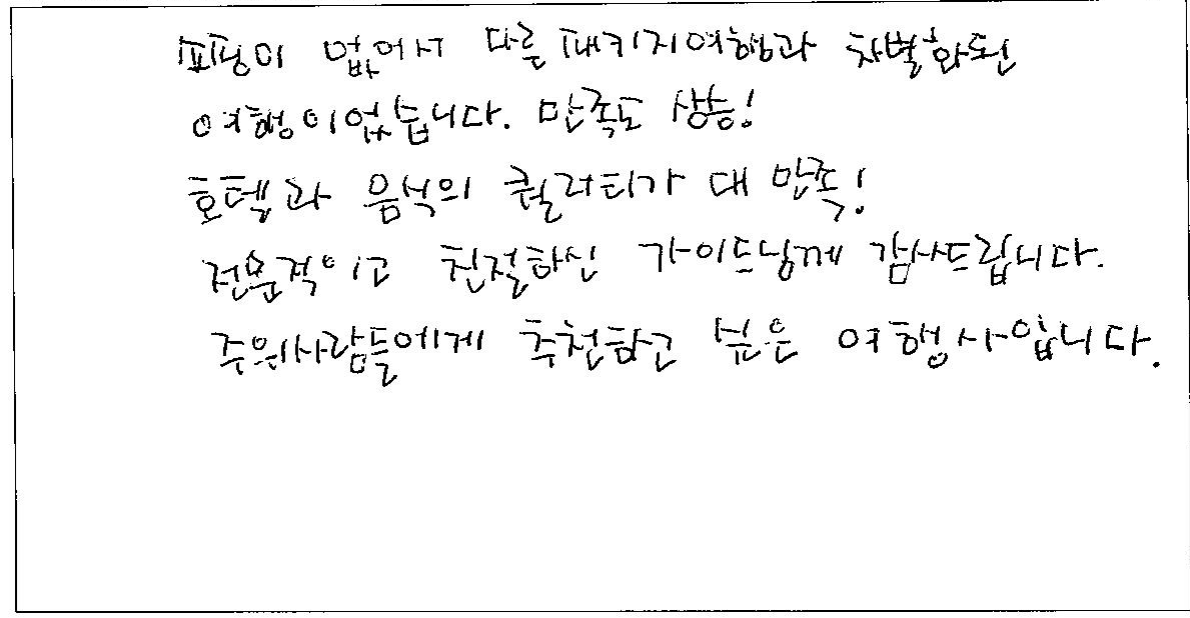 쇼핑이 없어서 다른 패키지여행과 차별화된
여행이었습니다. 만족도 상승!
호텔과 음식의 퀄러티가 대 만족!
전문적이고 친절하신 가이드님께 감사드립니다.
주위사람들에게 추천하고 싶은 여행사입니다.